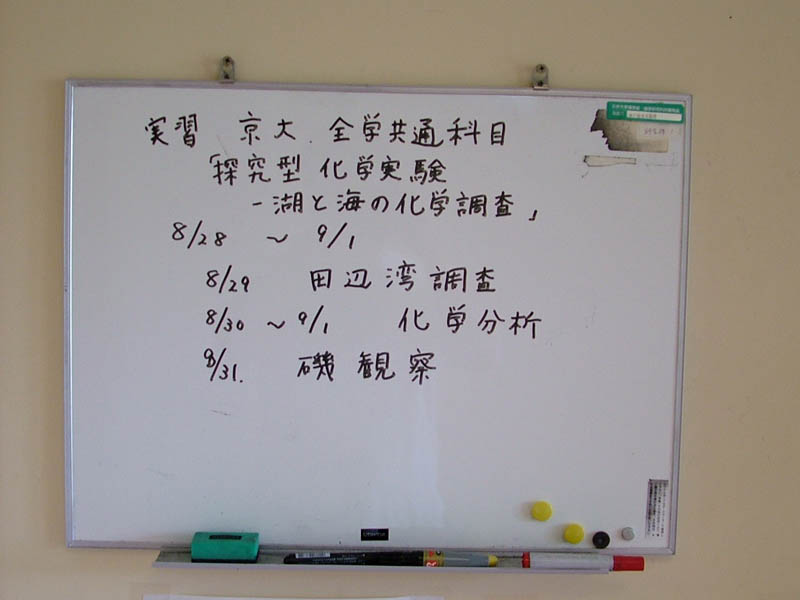 実習 京大 全学共通科目
「探究型 化学実験
-湖と海の化学調査」
8/28 ~ 9/1
8/29 田辺湾調査
8/30 ~ 9/1 化学分析
8/31. 磯観察